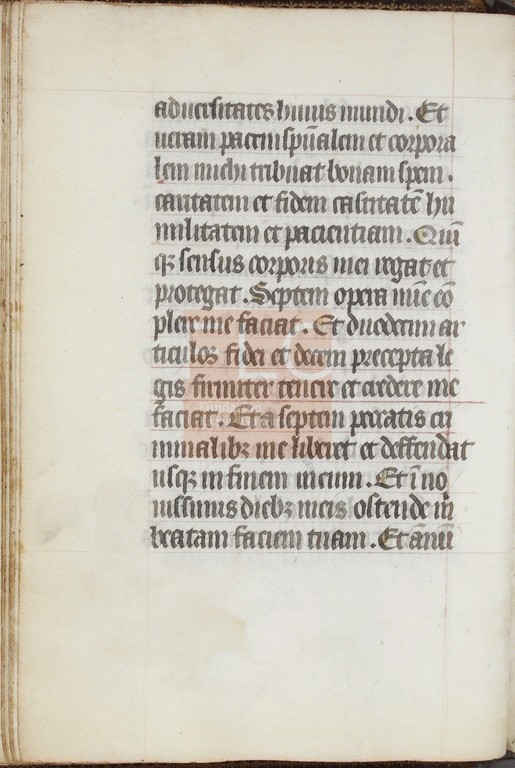 aduersitates huius mundi. Et
ueram pacem spūalem et corpora
lem michi tribuat bonam spem.
caritatem et fidem castitatē hu
militatem et pacientiam. Quī
qꝫ sensus corporis mei regat et
protegat. Septem opera mīe cō
plere me faciat. Et duodecim ar
ticulos fidei et decem precepta le
gis firmiter tenere et credere me
faciat. Et a septem peccatis cri
minalibꝫ me liberet et deffendat
usqꝫ in finem meum. Et ī no
uissimis diebꝫ meis ostende m
beatam faciem tuam. Et ānū